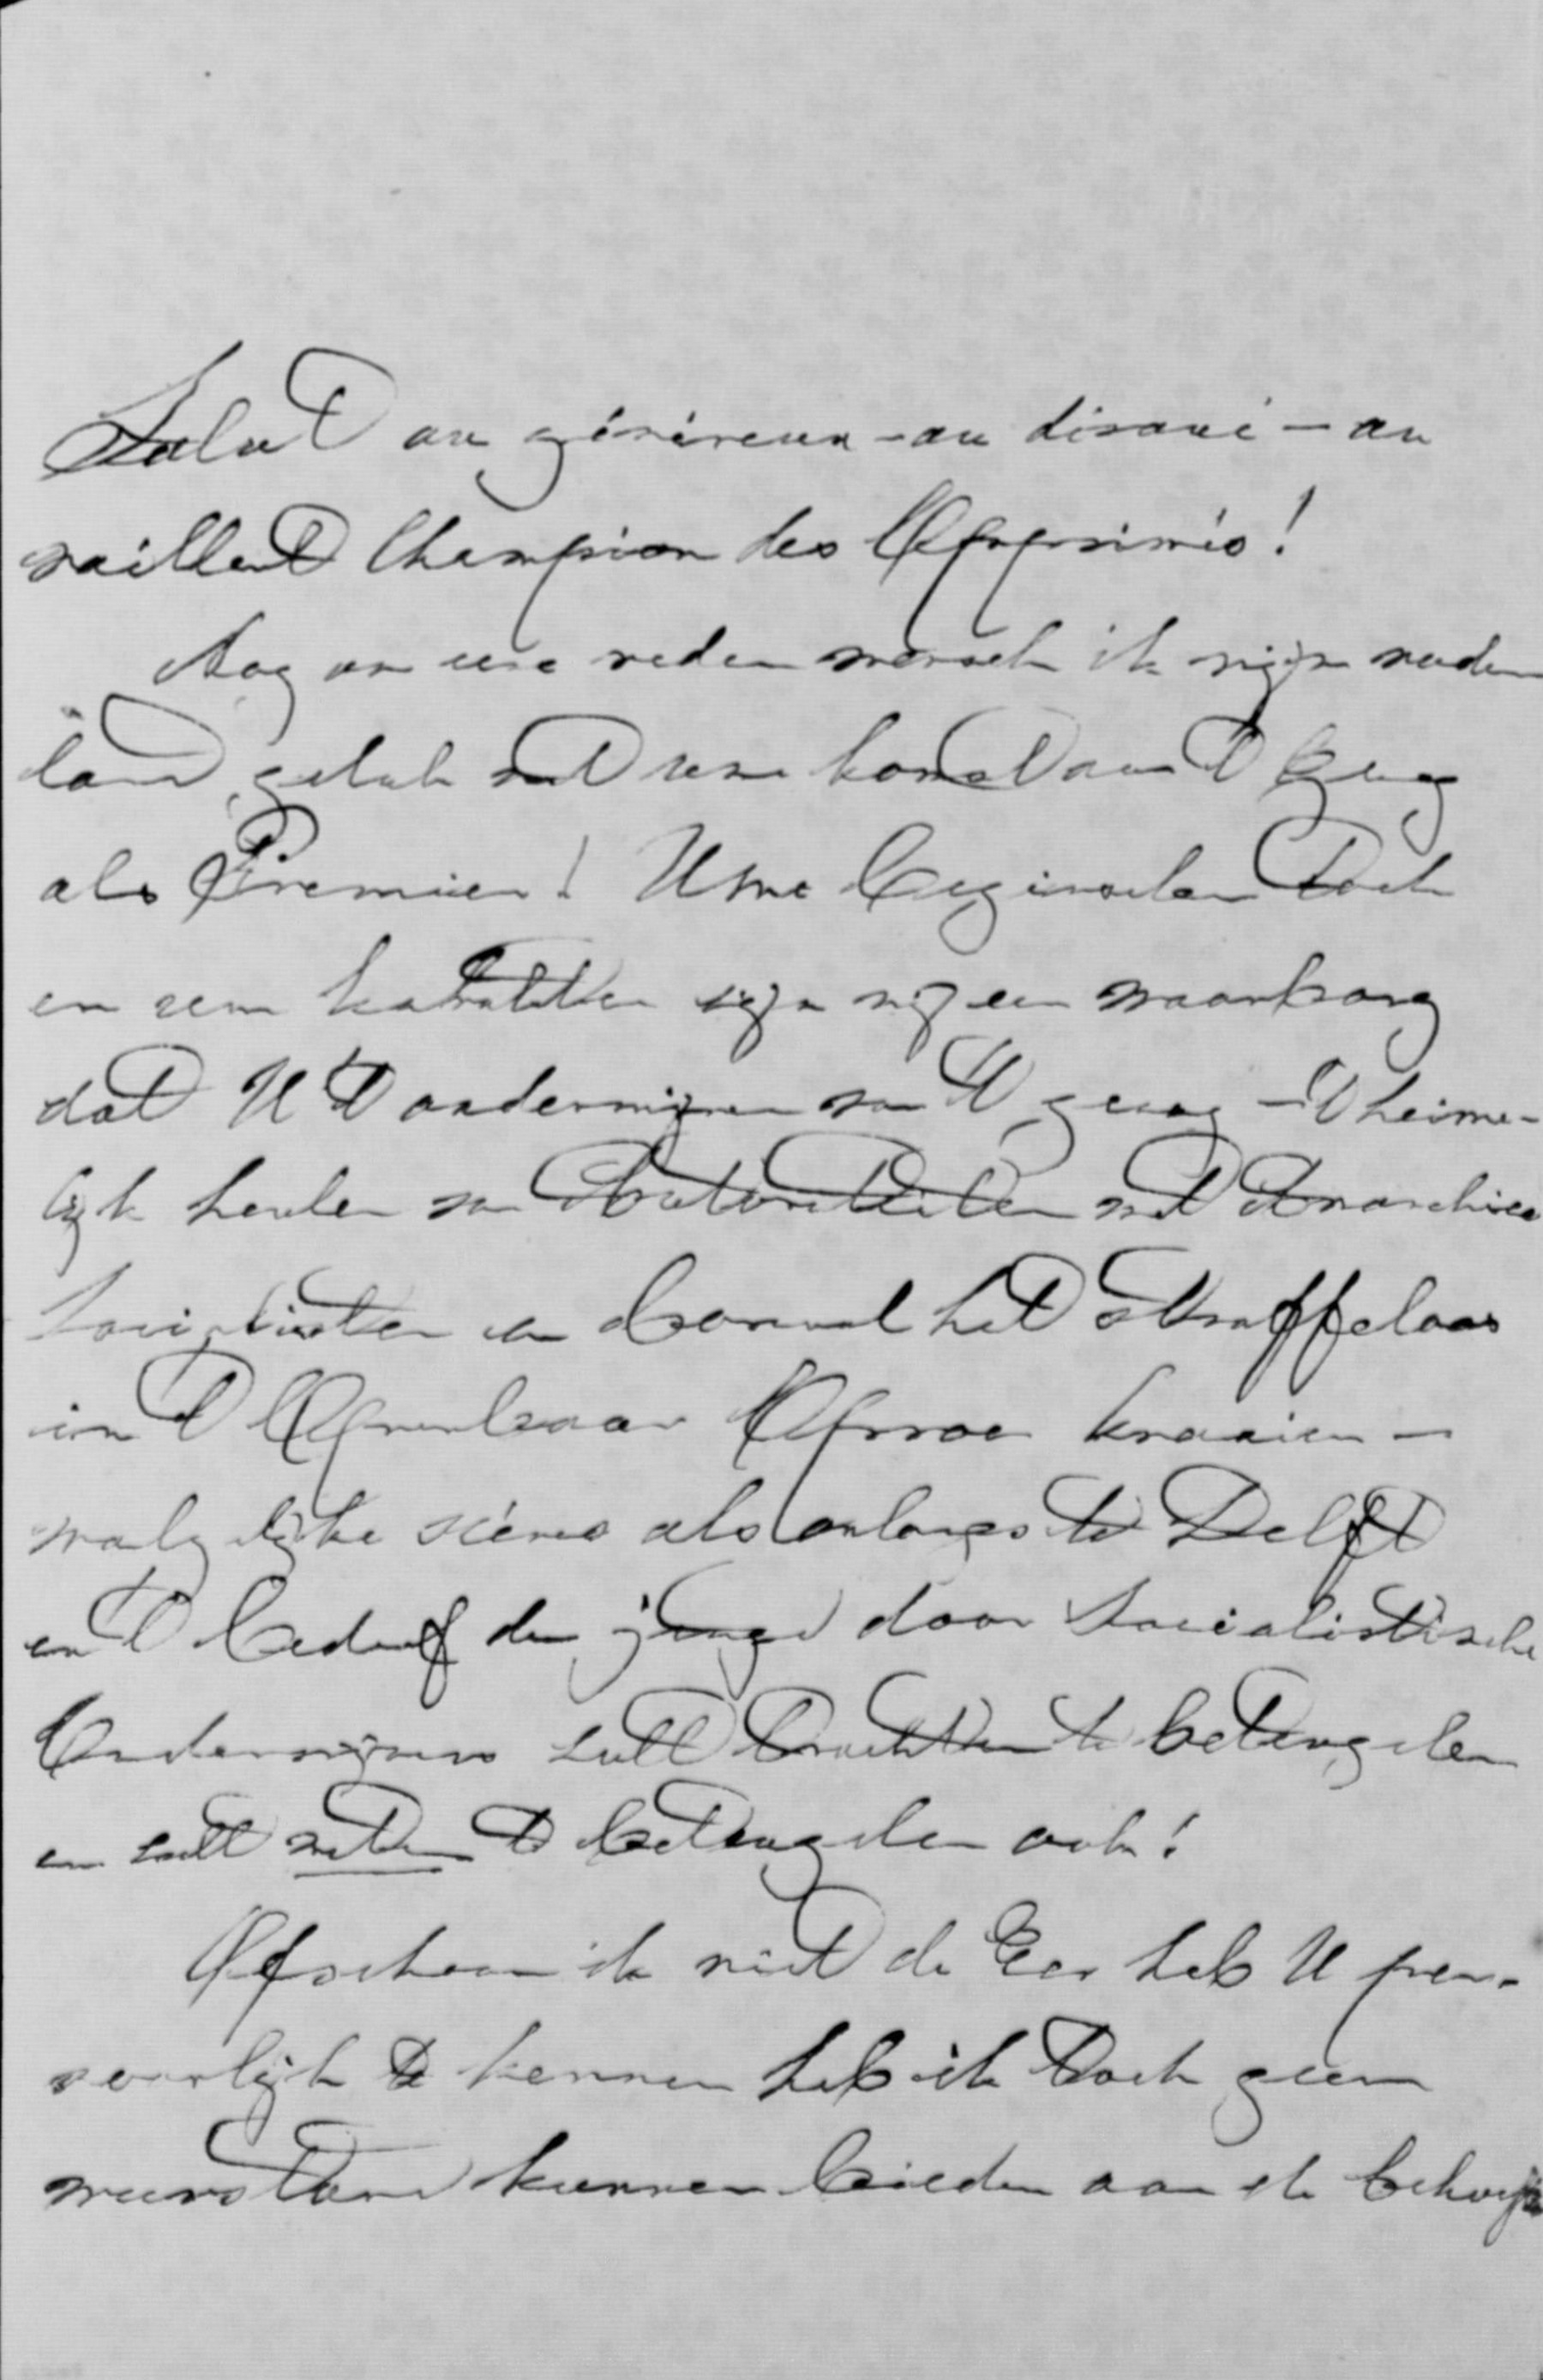 Salut au généreux - au dévoué - au
vaillant Champion des Opprimés!
Nog om eene reden wensch ik mijn vader
land geluk met uwe komst aan 't Gezag
als Premier! Uwe beginselen toch
en uw karakter zijn mij een waarborg
dat U 't ondermijnen van 't gezag - 't heime-
lijk heulen van Autoriteiten met Anarchies
Socialisten en bovenal het straffeloos
in 't Openbaar Oproer kraaien -
walgelijke scènes als onlangs te Delft
en 't bederf der jeugd door Socialistische
Onderwijzers zult trachten te beteugelen
en zult weten te beteugelen ook!
Ofschoon ik niet de Eer heb U per-
soonlijk te kennen heb ik toch geen
weerstand kunnen bieden aan de behoefte